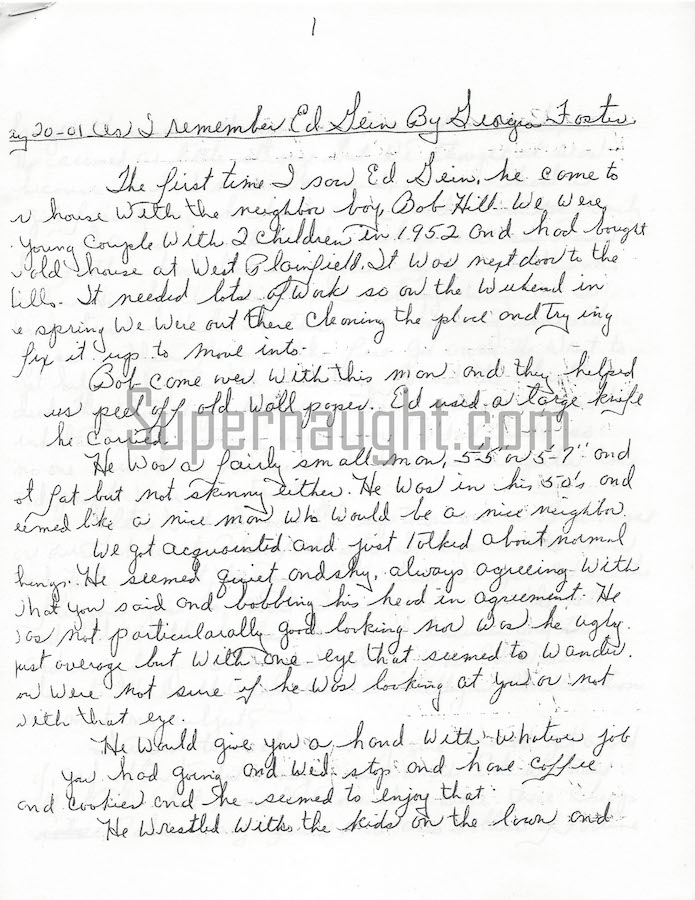 1
ay 20-01 As I remember Ed Gein By Georgia Foster
The first time I saw Ed Gein, he come to
r house with the neighbor boy, Bob Hill. We were
young couple with 2 children in 1952 and had bought
old house at West Plainfield. It was next door to the
ills. It needed lots of work so on the weekend in
e spring we were out there cleaning the place and trying
fix it up to move into.
Bob come over with this man and they helped
us peel off old wall paper. Ed used a large knife
he carried.
Supernaught.com
He was a fairly small man, 5-5" or 5-7" and
ot fat but not skinny either. He was in his 50's and
eemed like a nice man who would be a nice neighbor.
We got acquainted and just talked about normal
hings. He seemed quiet and shy, always agreeing with
what you said and bobbing his head in agreement. He
as not particularally good looking nor was he ugly.
ust average but with one eye that seemed to wander.
ou were not sure if he was looking at you or not
with that eye.
He would give you a hand with whatever job
you had going and we'd stop and have coffee
and cookies and he seemed to enjoy that.
He wrestled with the kids on the lawn and